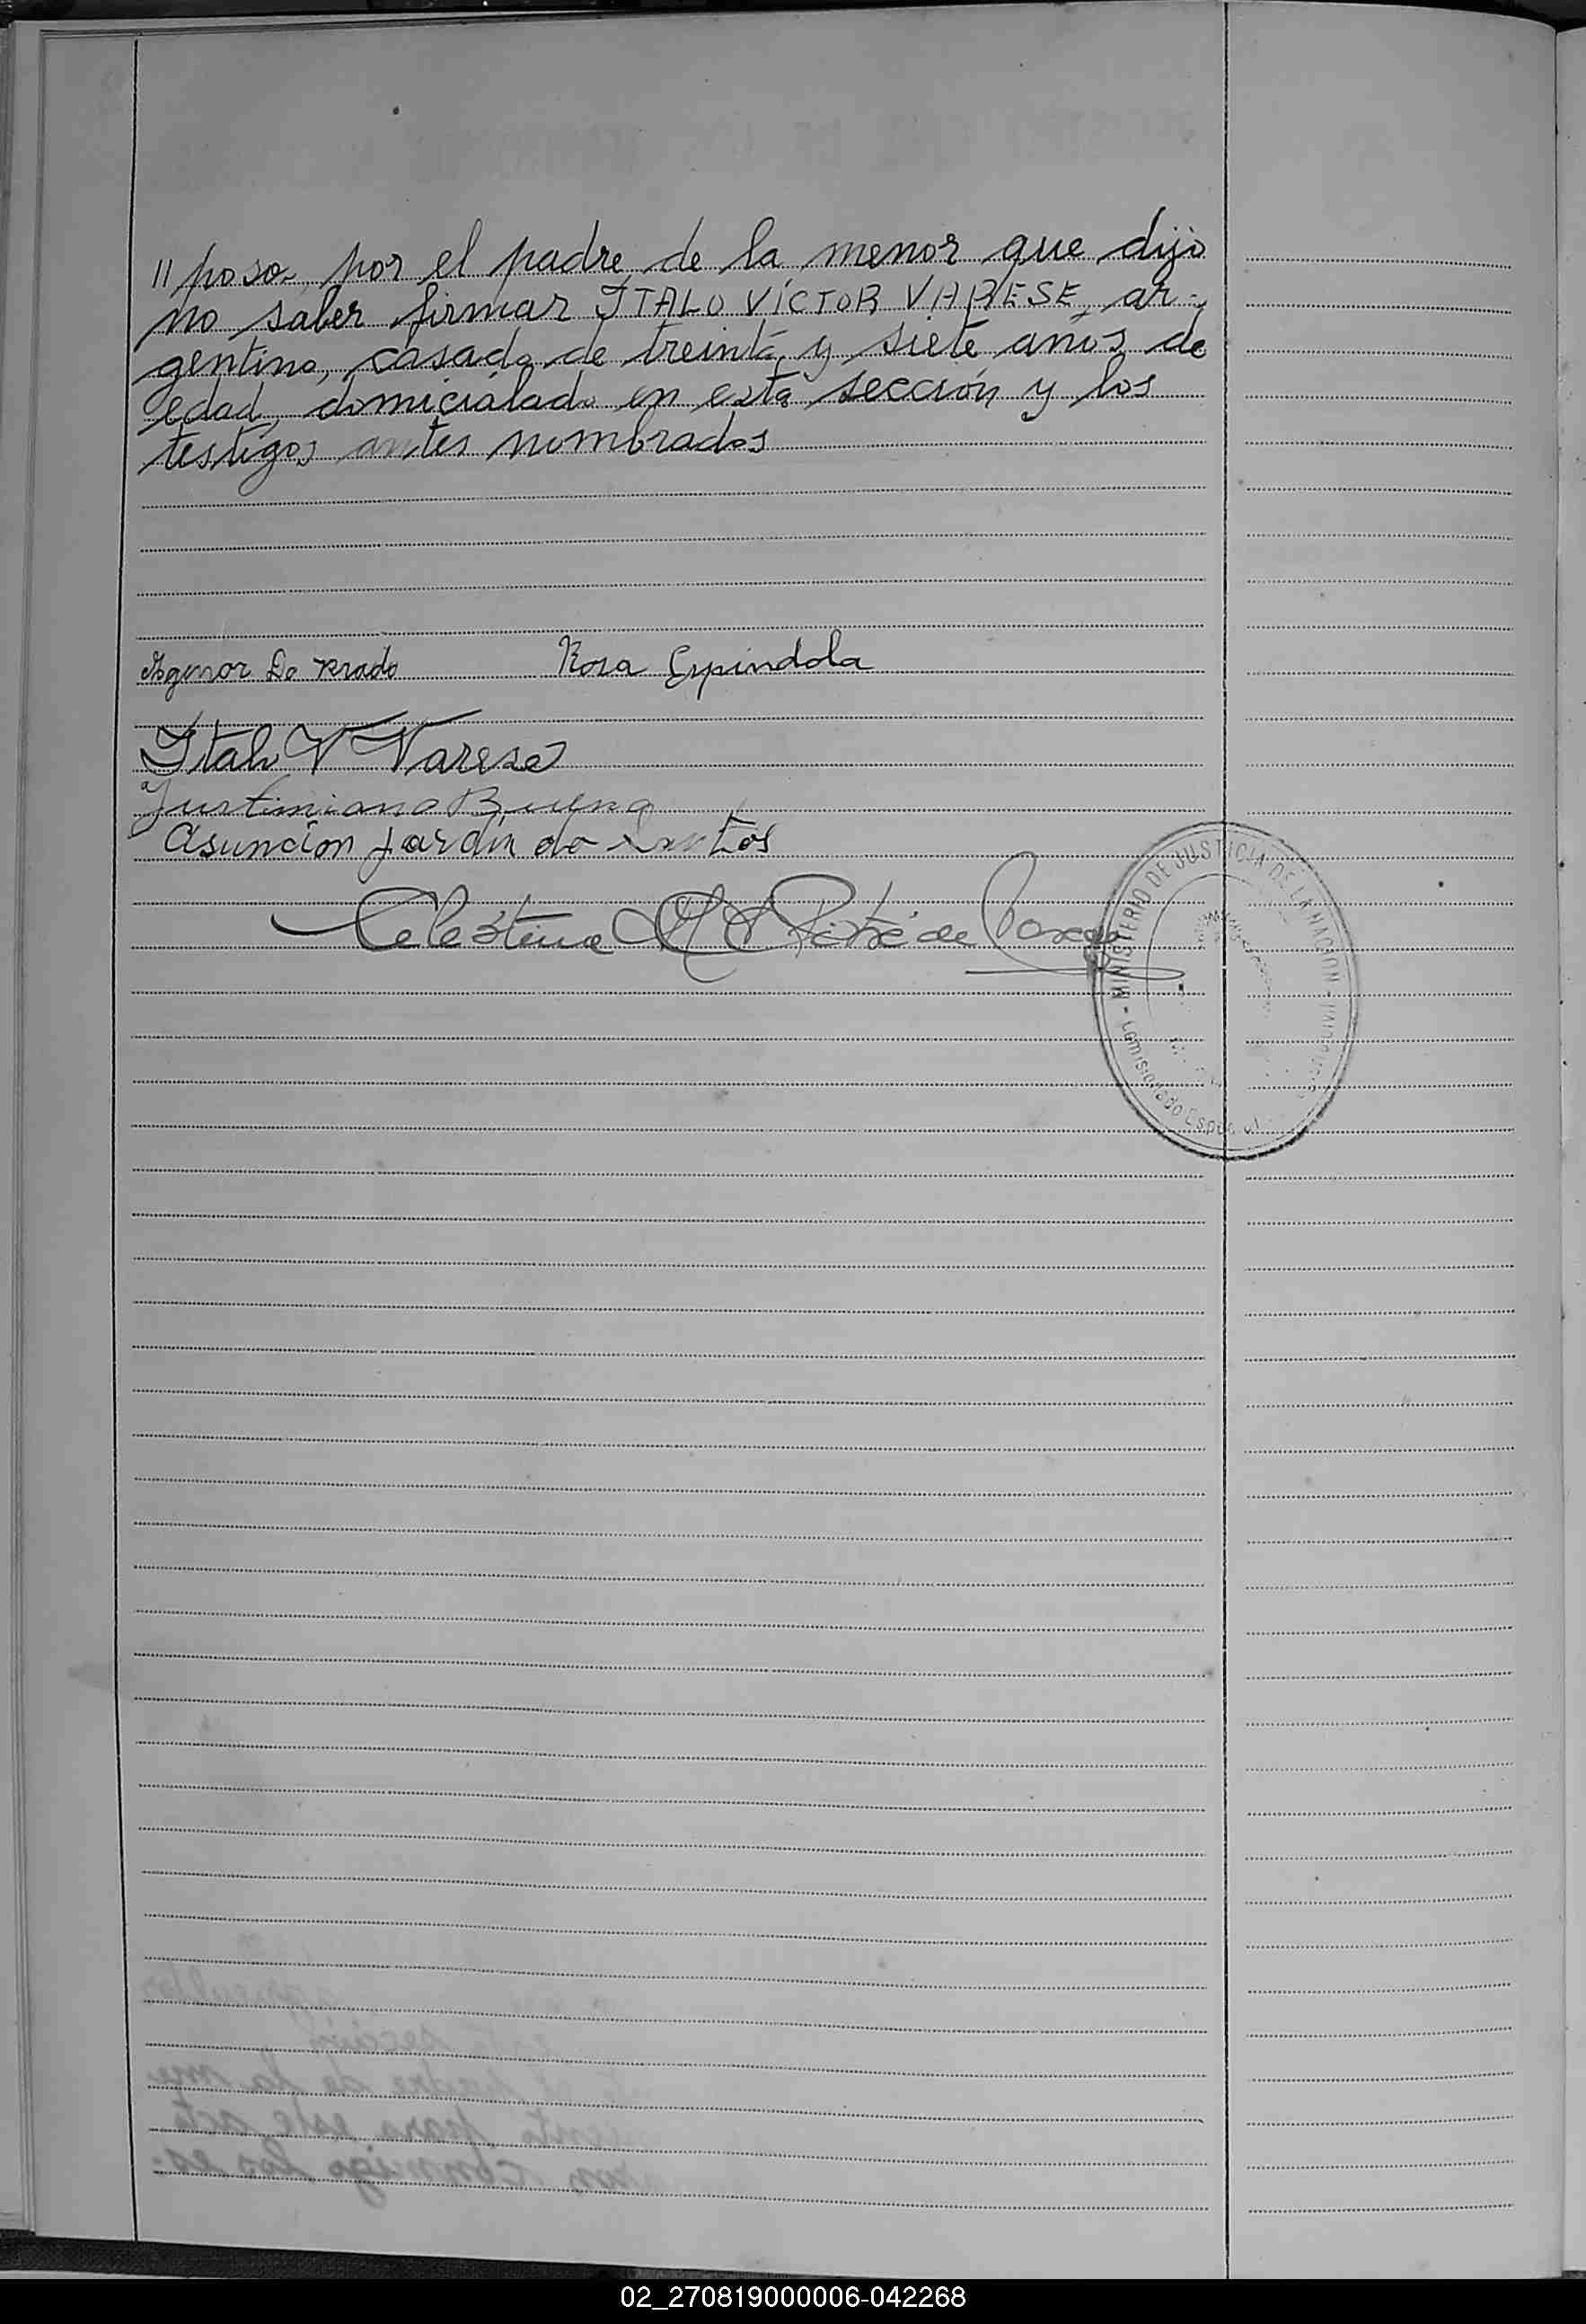 // posos, por el padre de la menor que dijo
no saber firmar ITALO VÍCTOR VARESE, ar-
gentino, casado de treinta y siete años de
edad, domicialado en esta sección y los
testigos antes nombrados
Agenor De Prado Rosa Espindola
Italo V Varese
Justiniano Bueno
Asunción Jardin de Santos
Celestina
MINISTERIO DE JUSTICIA DE LA NACION
Comisionado Especial
02_270819000006-042268